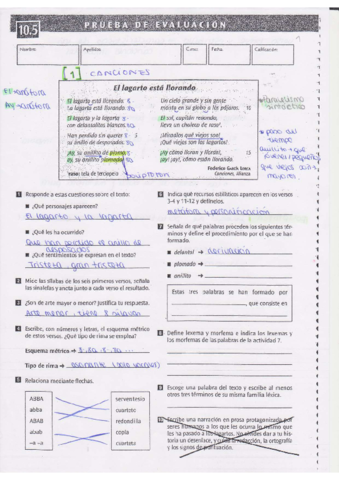 10.5 PRUEBA DE EVALUACIÓN
Nombre Apellidos Curso Fecha Calificación
[1] CANCIONES
El lagarto está llorando
El lagarto está llorando. 8
La lagarta está llorando. 8
El lagarto y la lagarta 8
con delantalitos blancos. 8
Han perdido sin querer 5
su anillo de desposados.
¡Ay, su anillito de plomo,
ay, su anillito plomado!
Un cielo grande y sin gente
monta en su globo a los pájaros. 10
El sol, capitán redondo,
lleva un chaleco de raso.
¡Miradlos qué viejos son!
¡Qué viejos son los lagartos!
¡Ay cómo lloran y lloran, 15
¡ay! ¡ay!, cómo están llorando.
Federico García Lorca
Canciones, Alianza
raso: tela de terciopelo
1 Responde a estas cuestiones sobre el texto:
■ ¿Qué personajes aparecen?
El lagarto y la lagarta
■ ¿Qué les ha ocurrido?
Que han perdido el anillo de
desposados
■ ¿Qué sentimientos se expresan en el texto?
Tristeza, gran tristeza
2 Mide las sílabas de los seis primeros versos, señala
las sinalefas y anota junto a cada verso el resultado.
3 ¿Son de arte mayor o menor? Justifica tu respuesta.
Arte menor, tiene 8 sílabas
4 Escribe, con números y letras, el esquema métrico
de estos versos. ¿Qué tipo de rima se emplea?
Esquema métrico →
Tipo de rima → asonante
5 Relaciona mediante flechas.
ABBA serventesio
abba cuarteto
ABAB redondilla
abab copla
–a –a cuarteta
6 Indica qué recursos estilísticos aparecen en los versos
3-4 y 11-12 y defínelos.
metáfora y personificación
7 Señala de qué palabras proceden los siguientes términos
y define el procedimiento por el que se han
formado.
■ delantal → derivación
■ plomado →
■ anillito →
Estas tres palabras se han formado por
, que consiste en
8 Define lexema y morfema e indica los lexemas y
los morfemas de las palabras de la actividad 7.
9 Escoge una palabra del texto y escribe al menos
otros tres términos de su misma familia léxica.
10 Escribe una narración en prosa protagonizada por
seres humanos a los que les ocurra lo mismo que
les ha pasado a los lagartos.
historia un desenlace, y cuida la redacción, la ortografía
y los signos de puntuación.